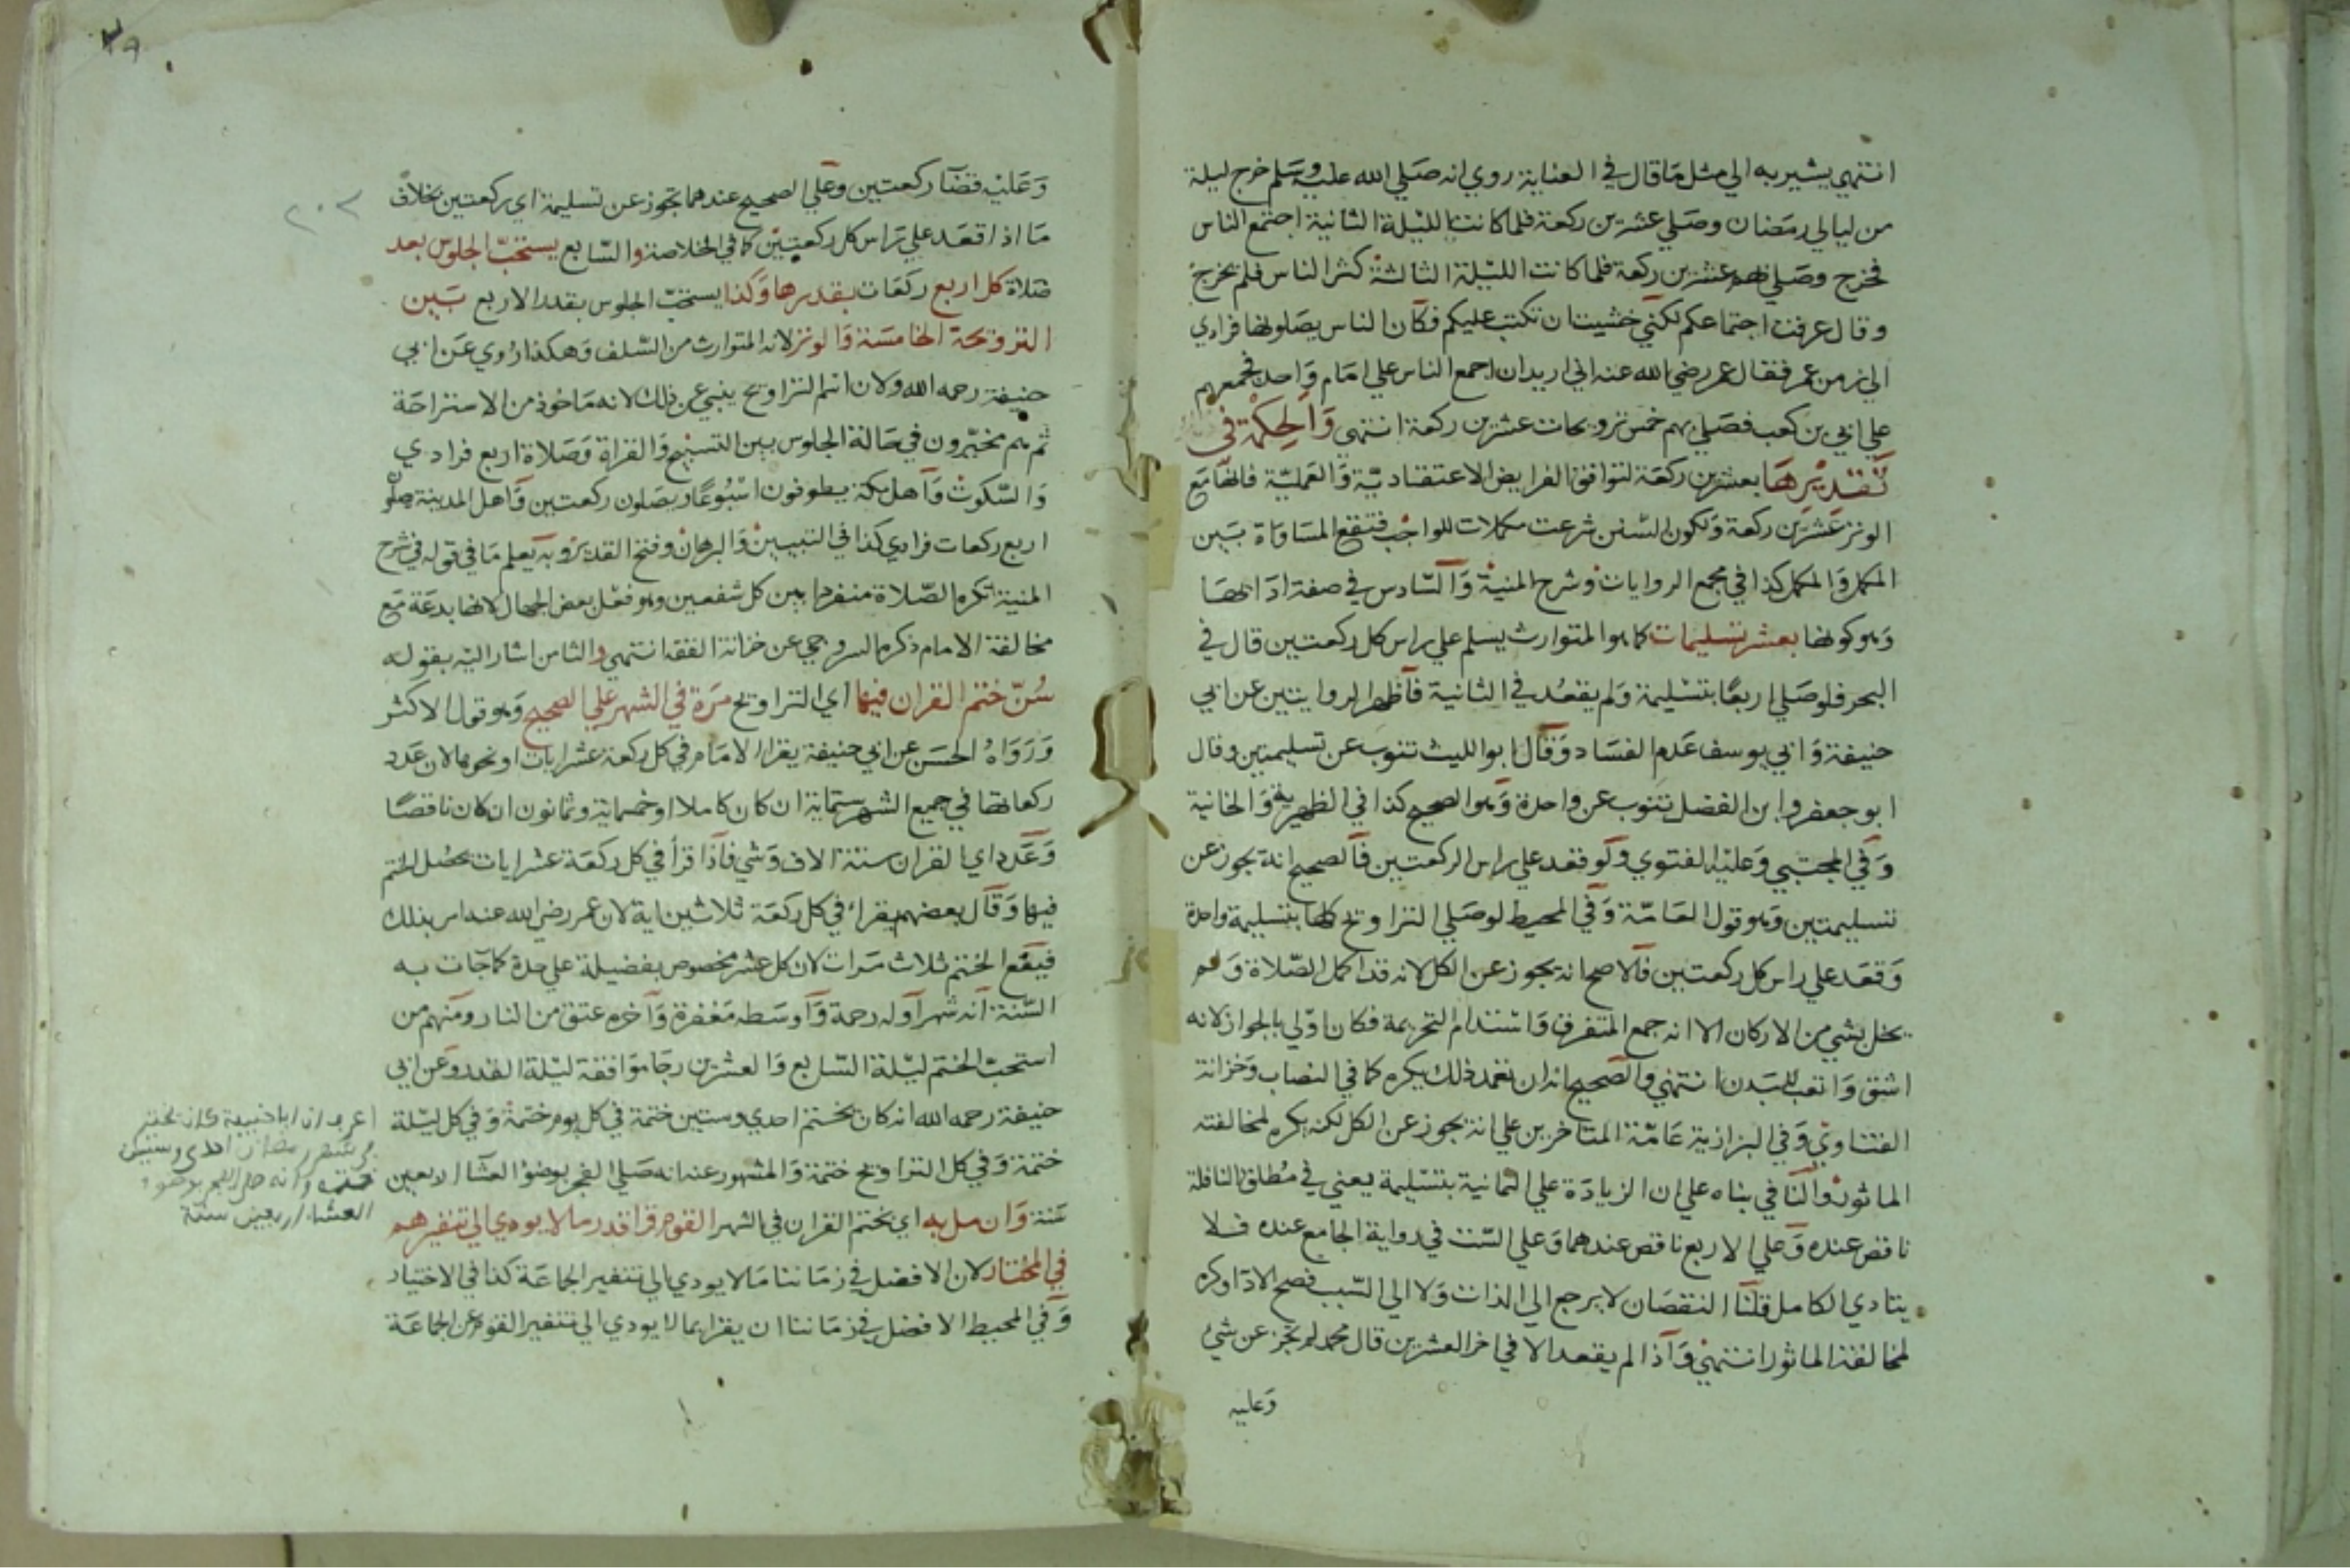 انتهي يشير به الي مثل ما قال في العناية روي انه صلي الله عليه وسلم خرج ليلة
من ليالي رمضان وصلي عشرين ركعة فلما كانت الليلة الثانية اجتمع الناس
فخرج وصلي بهم عشرين ركعة فلما كانت الليلة الثالثة كثر الناس فلم يخرج
وقال عرفت اجتماعكم لكني خشيت ان تكتب عليكم فكان الناس يصلونها فرادي
الي زمن عمر فقال عمر رضي الله عنه اني اريد ان اجمع الناس علي امام واحد فجمعهم
علي ابي بن كعب فصلي بهم خمس ترويحات عشرين ركعة انتهي والحكمة في
تقديرها بعشرين ركعة لتوافق الفرايض الاعتقادية والعملية فانها مع
الوتر عشرين ركعة ولكون السنن شرعت مكملات للواجب فتقع المساواة بين
المكمل والمكمل كذا في مجمع الروايات وشرح المنية والسادس في صفة ادائها
وهو كونها بعشر تسليمات كما هو المتوارث يسلم علي راس كل ركعتين قال في
البحر فلو صلي اربعا بتسليمة ولم يقعد في الثانية فاظهر الروايتين عن ابي
حنيفة وابي يوسف عدم الفساد وقال ابو الليث تنوب عن تسليمتين وقال
ابو جعفر وابن الفضل تنوب عن واحدة وهو الصحيح كذا في الظهيرية والخانية
وفي المجتبي وعليه الفتوي ولو قعد علي راس الركعتين فالصحيح انه يجوز عن
تسليمتين وهو قول العامة وفي المحيط لو صلي التراويح كلها بتسليمة واحدة
وقعد علي راس كل ركعتين فالاصح انه يجوز عن الكل لانه قد اكمل الصلاة ولم
يخل بشي من الاركان الا انه جمع المتفرق واستدام التحريمة فكان اولي بالجواز لانه
اشق واتعب للبدن انتهي والصحيح انه ان تعمد ذلك يكره كما في النصاب وخزانة
الفتاوي وفي البزازية عامة المتاخرين علي انه يجوز عن الكل لكنه يكره لمخالفته
الماثور والنافي بناه علي ان الزيادة علي الثمانية بتسليمة يعني في مطلق النافلة
ناقص عنده وعلي الاربع ناقص عندهما وعلي الست في رواية الجامع عنده فلا
يتادي الكامل قلنا النقصان لا يرجع الي الذات ولا الي السبب فصح الادا وكره
لمخالفة الماثور انتهي واذا لم يقعد الا في اخر العشرين قال محمد لم تجز عن شي
وعليه
وعليه قضا ركعتين وعلي الصحيح عندهما تجوز عن تسليمة اي ركعتين بخلاف
ما اذا قعد علي راس كل ركعتين كما في الخلاصة والسابع يستحب الجلوس بعد
صلاة كل اربع ركعات بقدرها وكذا يستحب الجلوس بقدر الاربع بين
الترويحة الخامسة والوتر لانه المتوارث من السلف وهكذا روي عن ابي
حنيفة رحمه الله ولان اسم التراويح ينبي عن ذلك لانه ماخوذ من الاستراحة
ثم هم مخيرون في حالة الجلوس بين التسبيح والقراة وصلاة اربع فرادي
والسكوت واهل مكة يطوفون اسبوعا ويصلون ركعتين واهل المدينة يصلون
اربع ركعات فرادي كذا في التبيين والبرهان وفتح القدير وبه يعلم ما في قوله في شرح
المنية تكره الصلاة منفردا بين كل شفعين وهو فعل بعض الجهال لانها بدعة مع
مخالفة الامام ذكره السروجي عن خزانة الفقه انتهي والثامن اشار اليه بقوله
سن ختم القران فيها اي التراويح مرة في الشهر علي الصحيح وهو قول الاكثر
ورواه الحسن عن ابي حنيفة يقرا الامام في كل ركعة عشر ايات او نحوها لان عدد
ركعاتها في جميع الشهر ستماية ان كان كاملا او خمسماية وثمانون ان كان ناقصا
وعدد اي القران ستة الاف وشي فاذا قرأ في كل ركعة عشر ايات يحصل الختم
فيها وقال بعضهم يقراء في كل ركعة ثلاثين اية لان عمر رضي الله عنه امر بذلك
فيقع الختم ثلاث مرات لان كل عشر مخصوص بفضيلة علي حدة كما جآت به
السنة انه شهر اوله رحمة واوسطه مغفرة واخره عتق من النار ومنهم من
استحب الختم ليلة السابع والعشرين رجا موافقة ليلة القدر وعن ابي
حنيفة رحمه الله انه كان يختم احدي وستين ختمة في كل يوم ختمة وفي كل ليلة
ختمة وفي كل التراويح ختمة والمشهور عنه انه صلي الفجر بوضوء العشا اربعين
سنة وان مل به اي بختم القران في الشهر القوم قرا قدر ما لا يودي الي تنفيرهم
في المختار لان الافضل في زماننا ما لا يودي الي تنفير الجماعة كذا في الاختيار
وفي المحيط الافضل في زماننا ان يقرا بما لا يودي الي تنفير القوم عن الجماعة
ان ابا حنيفة كان يختم
في شهر رمضان احدي وستين
ختمة وانه صلي الفجر بوضوء
العشا اربعين سنة